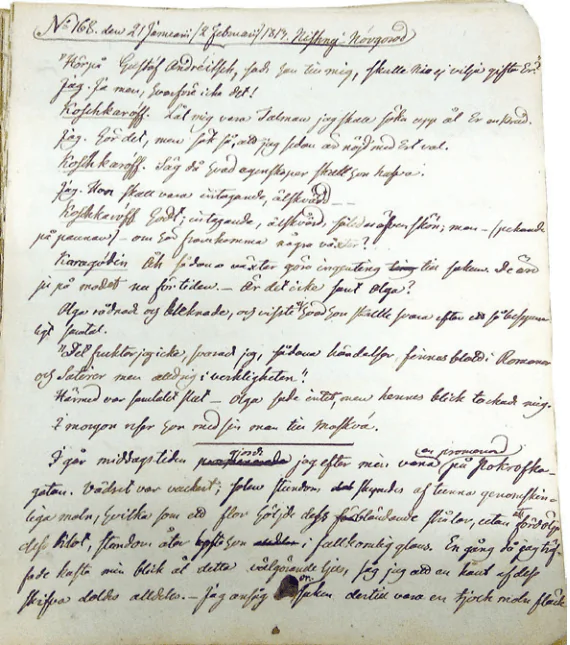 No 168. den 21 Januari/2 Februarij 1813. Nischnij-Novgorod
"Hör på Gustaf Andreitsch, sade hon till mig, skulle Nie ej vilja gifta Er?
Jag. Ja men, hvarföre icke det!
Koschkaroff. Låt mig vara Talman jag skall söka upp åt Er en brud.
Jag. Gör det, men sök så, att jag sedan är nöjd med Ert val.
Koschkaroff. Säg då hvad egenskaper skall hon hafva.
Jag. Hon skall vara intagande, älskvärd — —
Koschkaroff Godt; intagande, älskvärd, skön; men — (pekande
på pannan) — om här framkomma några växter?
Karagödin Åh sådana växter göra ingenting till saken. De äro
ju på modet nu för tiden. — Är det icke sant Olga?
Olga rodnad och bleknade, och visste ej hvad hon skulle svara efter ett så
ligt samtal.
"Det fruktar jag icke, svarade jag, sådana händelser finnas blott i Romaner
och Satirer men aldrig i verkligheten".
Härmed var samtalet slut — Olga sade intet, men hennes blick tackade mig.
I morgon reser hon med sin man till Moskva.
I går middagstiden gjorde jag efter min vana en promenad på Pokrofska-
gatan. Vädret var vackert; solen stundom skymdes af tunna genomskin-
liga moln, hvilka som ett flor höljde dess bländande strålar, utan att fördölja
dess klot, stundom åter hon i fullkomlig glans. En gång då jag häf-
fade kasta min blick åt detta välgörande ljus, såg jag att en kant af dess
skifva doldes alldeles. — Jag ansåg orsaken dertill vara en tjock moln fläck